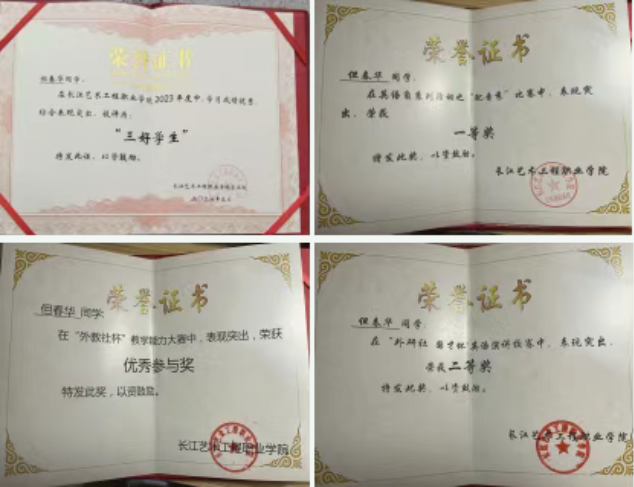 荣誉证书
但春华同学：
在长江艺术工程职业学院2023年度中，学习成绩优異，
综合表现突出，被评为：
“三好学生”
特发此证，以资鼓励。
荣誉证书
但春华 同学：
在英语角系列活动之“配音秀”比赛中，表现突
出，荣获
一等奖
特发此奖，以资鼓励。
长江艺术工程职业学院
荣誉证书
但春华 同学：
在“外教社杯”教学能力大赛中，表现突出，荣获
优秀参与奖
特发此奖，以资鼓励。
长江艺术工程职业学院
荣誉证书
但春华 同学：
在“外研社 英语演讲校赛中，表现突出，
荣获二等奖
特发此奖，以资鼓励。
长江艺术工程职业学院